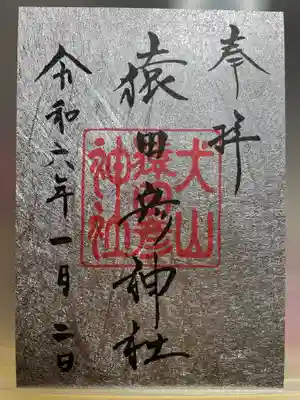 奉拝
猿田彦神社
犬山
猿田彦
神社
令和六年一月二日